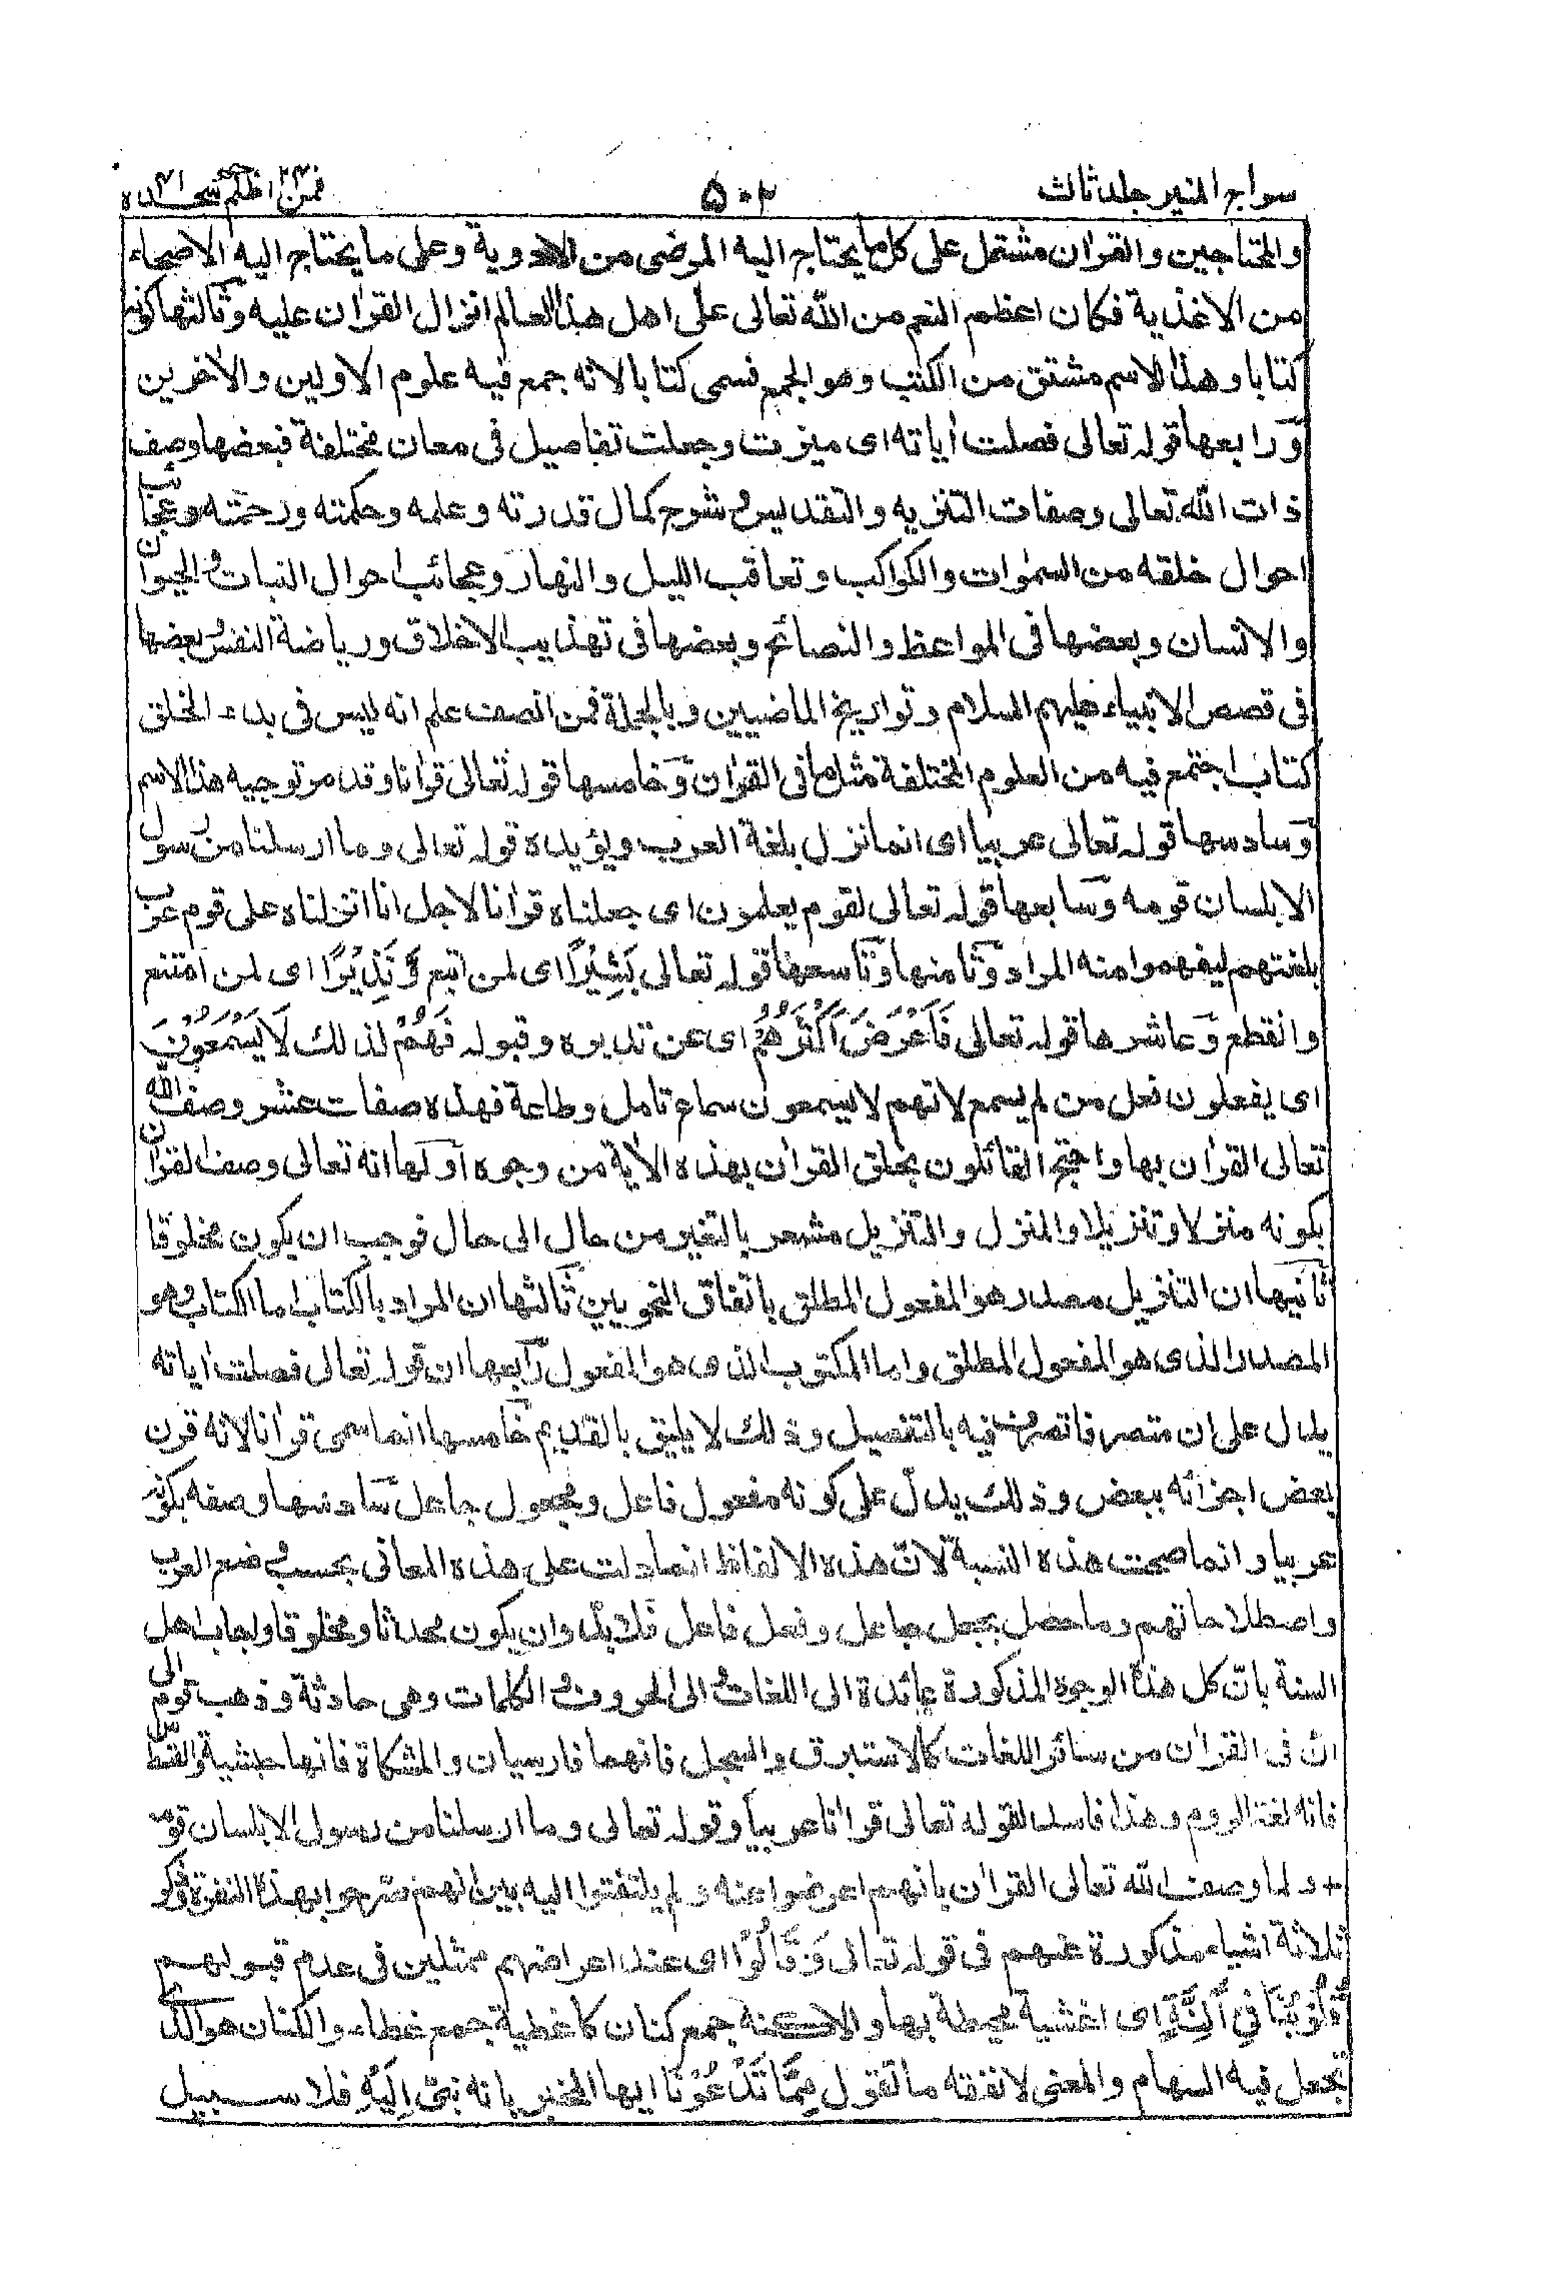 سراج المنير جلد ثالث
٥٠٢
فمن اظلم ٢٤ حم سجده ٤١
والمحتاجين والقراٰن مشتمل على كل ما يحتاج اليه المرضى من الادوية وعلى ما يحتاج اليه الاصحاء
من الاغذية فكان اعظم النعم من الله تعالى على اهل هذا العالم انزال القراٰن عليه وثالثها كونه
كتابا وهذا الاسم مشتق من الكتب وهو الجمع فسمى كتابا لانه جمع فيه علوم الاولين والاٰخرين
ورابعها قوله تعالى فصلت اٰياته اى ميزت وجعلت تفاصيل فى معان مختلفة فبعضها وصف
ذات الله تعالى وصفات التنزيه والتقديس وشرح كمال قدرته وعلمه وحكمته ورحمته وعجائب
احوال خلقه من السمٰوات والكواكب وتعاقب الليل والنهار وعجائب احوال النبات والحيوان
والانسان وبعضها فى المواعظ والنصائح وبعضها فى تهذيب الاخلاق ورياضة النفس وبعضها
فى قصص الانبياء عليهم السلام وتواريخ الماضيين وبالجملة فمن انصف علم انه ليس فى بداء الخلق
كتاب اجتمع فيه من العلوم المختلفة مثل ما فى القراٰن وخامسها قوله تعالى قراٰنا وقد مر توجيه هذا الاسم
وسادسها قوله تعالى عربيا اى انما نزل بلغة العرب ويؤيده قوله تعالى وما ارسلنا من رسول
الا بلسان قومه وسابعها قوله تعالى لقوم يعلمون اى جعلناه قراٰنا لاجل انا انزلناه على قوم عرب
بلغتهم ليفهموا منه المراد وثامنها وتاسعها قوله تعالى بَشِيْرًا اى لمن اتبع وَّنَذِيْرًا اى لمن امتنع
وانقطع وعاشرها قوله تعالى فَاَعْرَضَ اَكْثَرُهُمْ اى عن تدبره وقبوله فَهُمْ لذلك لَا يَسْمَعُوْنَ
اى يفعلون فعل من لم يسمع لانهم لا يسمعون سماع تامل وطاعة فهذه صفات عشر وصف الله
تعالى القراٰن بها واحتج القائلون بخلق القراٰن بهذه الاٰية من وجوه اولها انه تعالى وصف القراٰن
بكونه منزلا وتنزيلا والمنزل والتنزيل مشعر بالتغير من حال الى حال فوجب ان يكون مخلوقا
ثانيها ان التنزيل مصدر هو المفعول المطلق باتفاق النحويين ثالثها ان المراد بالكتاب اما الكتاب وهو
المصدر الذى هو المفعول المطلق واما المكتوب الذى هو المفعول رابعها ان قوله تعالى فصلت اٰياته
يدل على ان متصرفا تصرف فيه بالتفصيل وذلك لا يليق بالقديم خامسها انما سمى قراٰنا لانه قرن
بعض اجزائه ببعض وذلك يدل على كونه مفعول فاعل ومجعول جاعل سادسها وصفه بكونه
عربيا وانما صحت هذه النسبة لان هذه الالفاظ انما دلت على هذه المعانى بحسب وضع العرب
واصطلاحاتهم وما حصل بجعل جاعل وفعل فاعل فلا بدّ وان يكون محدثا ومخلوقا واجاب اهل
السنة بانّ كل هذه الوجوه المذكورة عائدة الى اللغات والى الحروف والكلمات وهى حادثة وذهب قوم الى
ان فى القراٰن من سائر اللغات كالاستبرق والسجل فانهما فارسيان والمشكاة فانها حبشية والقسطاس
فانه لغة الروم وهذا فاسد لقوله تعالى قراٰنا عربيا وقوله تعالى وما ارسلنا من رسول الا بلسان قومه
+ ولما وصف الله تعالى القراٰن بانهم اعرضوا عنه ولم يلتفتوا اليه بين انهم صرحوا بهذه النفرة وذكر
ثلاثة اشياء مذكورة عنهم فى قوله تعالى وَقَالُوْا اى عند اعراضهم ممثلين فى عدم قبولهم
قُلُوْبُنَا فِىْ اَكِنَّةٍ اى اغشية محيطة بها والاكنة جمع كنان كاغطية جمع غطاء والكنان هو الذى
تجعل فيه السهام والمعنى لا نفقه ما تقول مِّمَّا تَدْعُوْنَا ايها المخبر بانه نبى اِلَيْهِ فلا سبيل